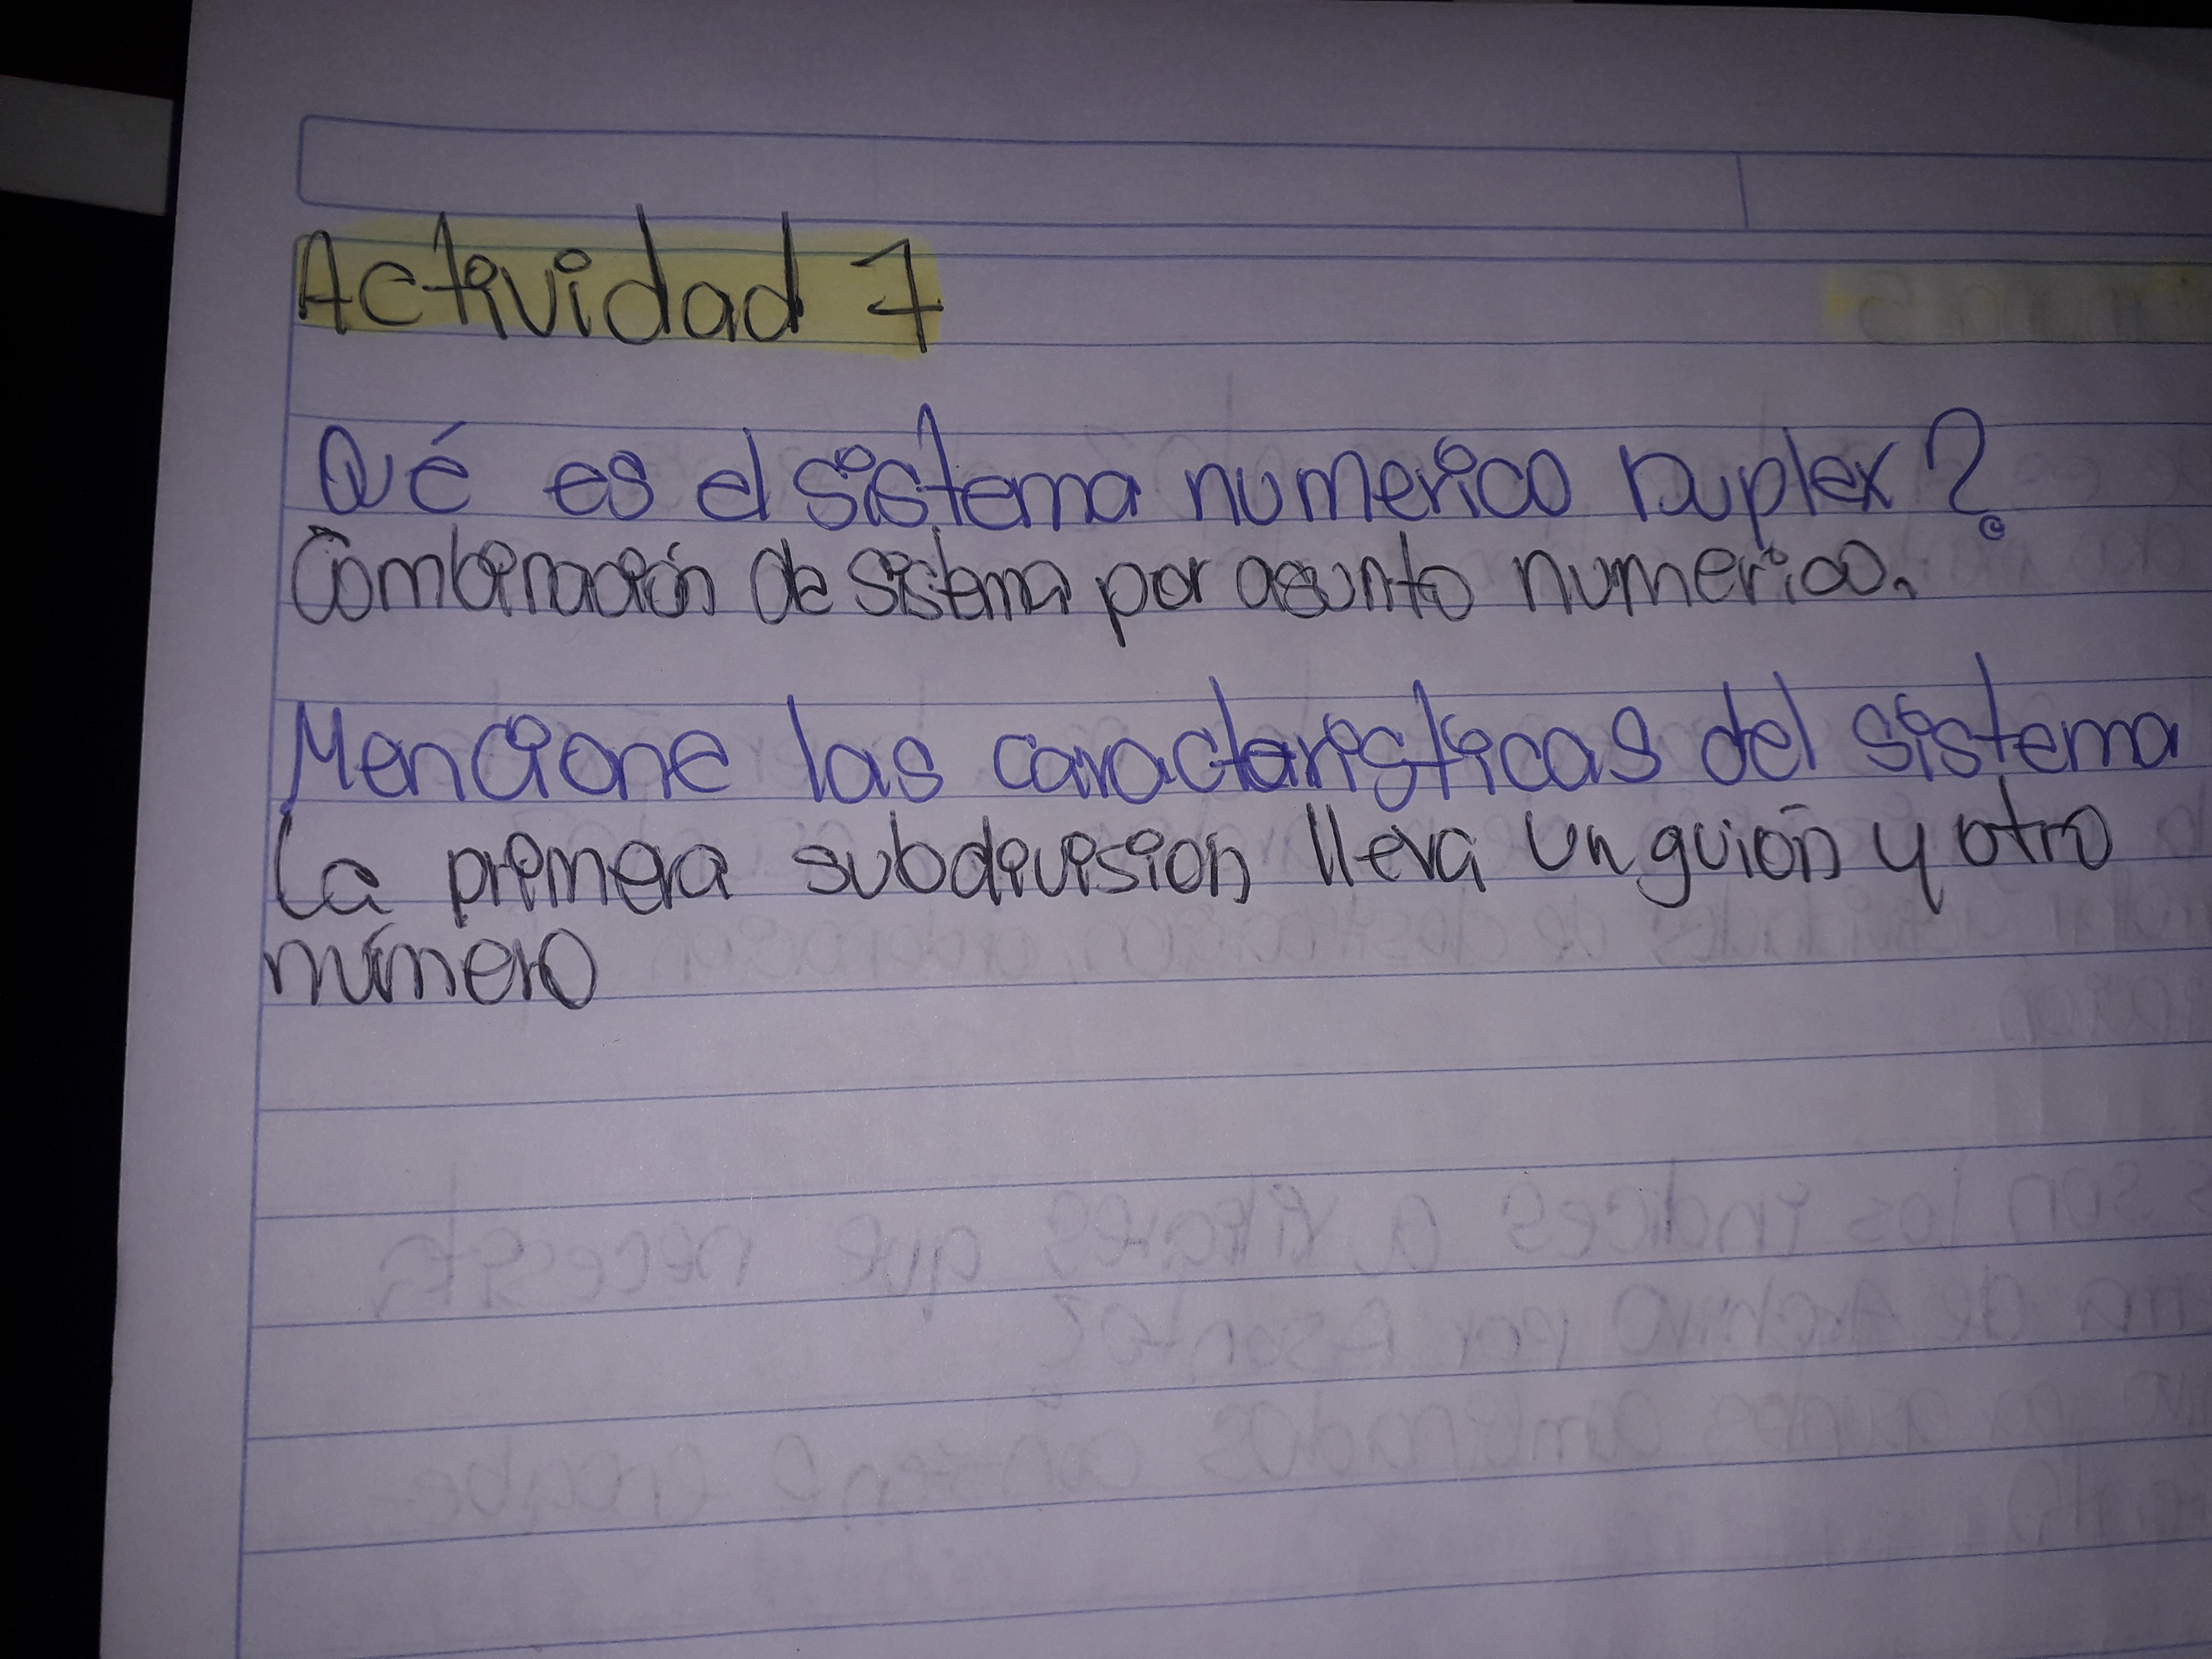 Actividad 7
Qué es el sistema numerico Duplex?
Combinación de sistema por asunto numerico.
Mencione las caracteristicas del sistema
La primera subdivision lleva un guión y otro
número